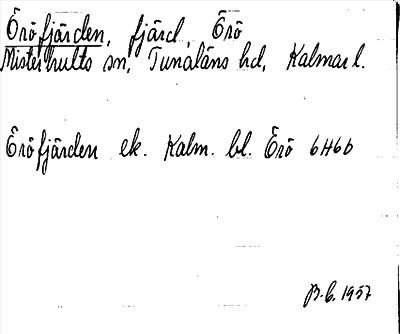 Örö fjärden, fjärd, Örö
Misterhults sn, Tunaläns hd, Kalmar l.
Öröfjärden ek. Kalm. bl. Örö 6H6b
B.C. 1957